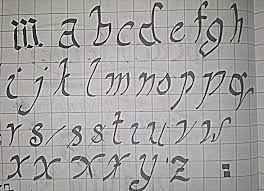 m a b c d e f g h
i j k l m n o p p q
r s s s t i u r v w
x x x x y z